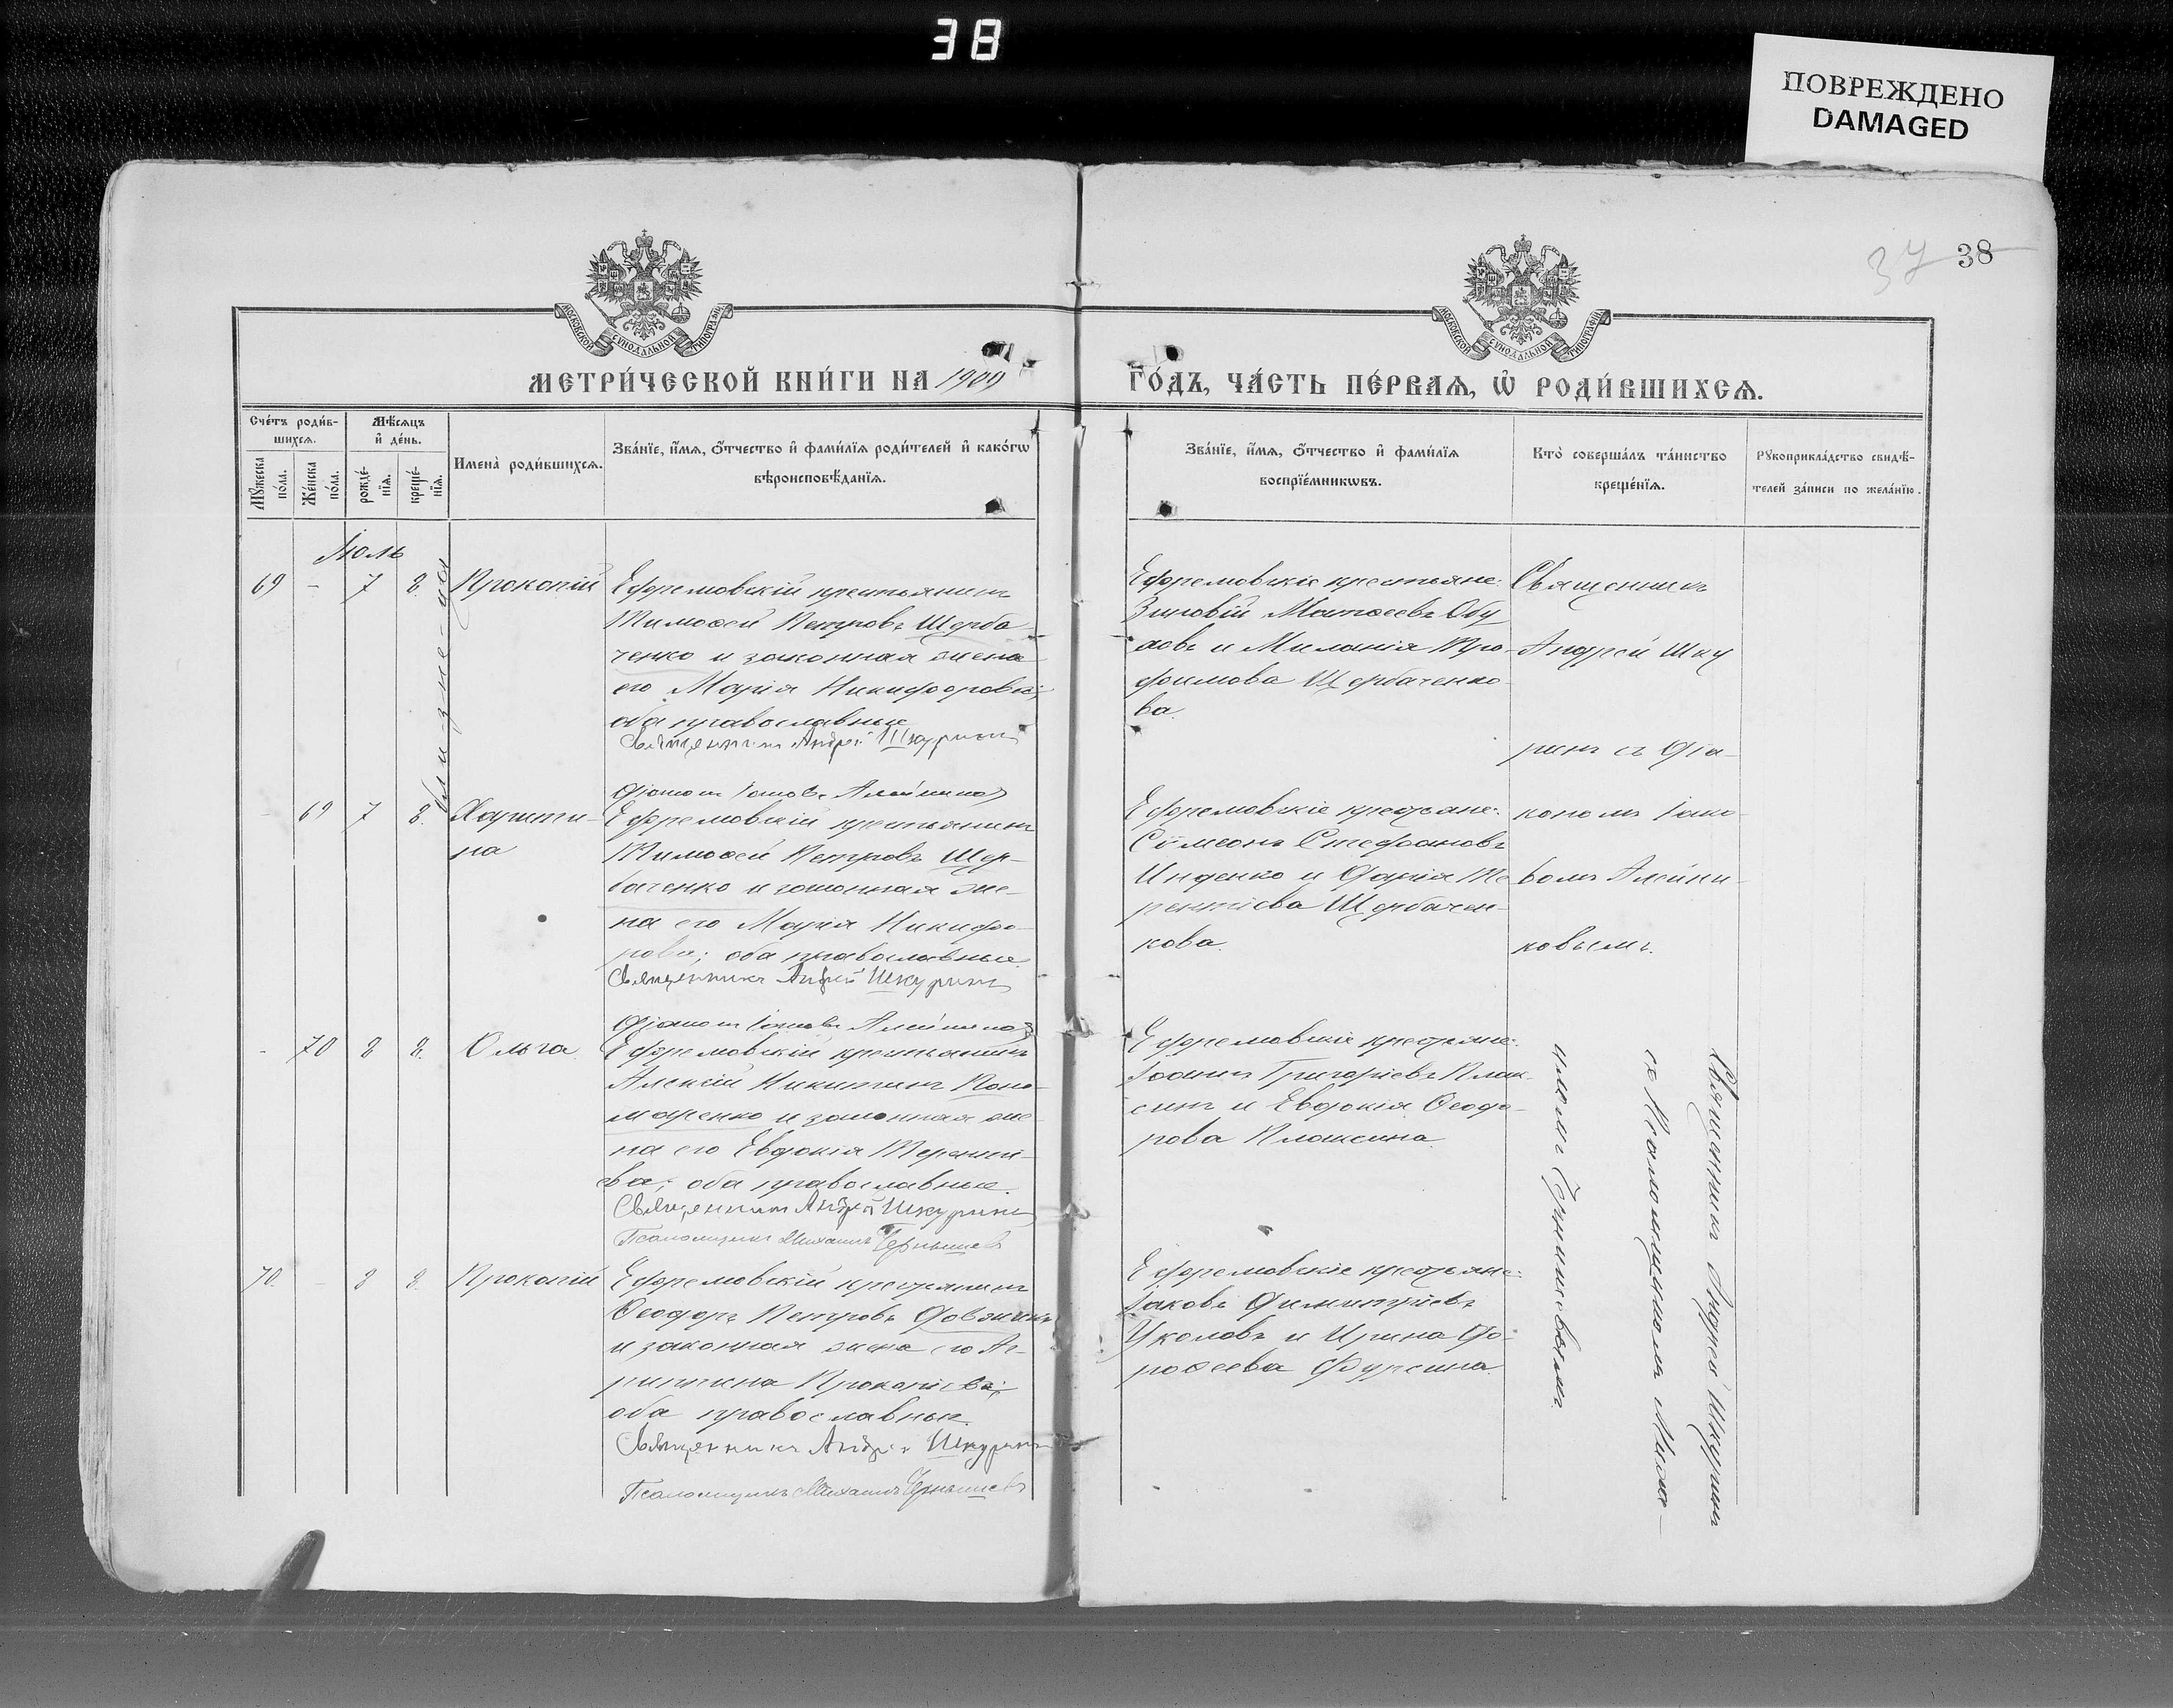 38
ПОВРЕЖДЕНО
DAMAGED
37 38
МОСКОВСКОЙ СѴНОДАЛЬНОЙ ТИПОГРАФІИ
МОСКОВСКОЙ СѴНОДАЛЬНОЙ ТИПОГРАФІИ
МЕТРИ́ЧЕСКОЙ КНИ́ГИ НА 1909 ГО́ДЪ, ЧА́СТЬ ПЕ́РВАѦ, Ѡ҆ РОДИ́ВШИХСѦ.
Сче́тъ роди́в-
шихсѧ.
Мꙋ́жеска
по́ла.
Же́нска
по́ла.
Мѣ́сѧцъ
и҆ де́нь.
рожде́-
нїѧ.
креще́-
нїѧ.
Имена̀ роди́вшихсѧ.
Зва́нїе, и҆́мѧ, ѻ҆́тчество и҆ фами́лїѧ роди́телей и҆ како́гѡ
вѣроисповѣ́данїѧ.
Зва́нїе, и҆́мѧ, ѻ҆́тчество и҆ фами́лїѧ
воспрїе́мникѡвъ.
Кто̀ соверша́лъ та́инство
креще́нїѧ.
Рꙋкоприкла́дство свидѣ́-
телей за́писи по жела́нїю.
Іюль
близне-цы
69 - 7 8. Прокопій
Ефремовскій крестьянинъ
Тимоѳей Петровъ Щерба-
ченко и законная жена
его Марія Никифорова;
оба православные
Священникъ Андрей Шкуринъ
Діаконъ Іаковъ Алейниковъ
Ефремовскіе крестьяне:
Зиновій Матѳеевъ Обу
ховъ и Миланія Тро-
фимова Щербаченко-
ва.
Священникъ
Андрей Шку
ринъ съ Діа-
кономъ Іако-
вомъ Алейни-
ковымъ.
- 69 7 8. Харити-
на
Ефремовскій крестьянинъ
Тимоѳей Петровъ Щер-
баченко и законная же-
на его Марія Никифо-
рова; оба православные.
Священникъ Андрей Шкуринъ
Діаконъ Іаковъ Алейниковъ
Ефремовскіе крестьяне:
Сѵмеонъ Стефановъ
Инденко и Дарія Те
рентіева Щербачен-
кова.
- 70 8 8. Ольга
Ефремовскій крестьянинъ
Алексій Никитинъ Поно-
маренко и законная же
на его Евдокія Терентi-
ева; оба православные.
Священникъ Андрей Шкуринъ
Псаломщикъ Михаилъ Чернышевъ
Ефремовскіе крестьяне:
Іоаннъ Григоріевъ Плак-
синъ и Евдокія Ѳеодо-
рова Плаксина.
Священникъ Андрей Шкуринъ
съ Псаломщикомъ Миха-
иломъ Чернышевымъ.
70. - 8 8. Прокопій
Ефремовскій крестьянинъ
Ѳеодоръ Петровъ Довженко
и законная жена его Ак-
рипина Прокопіева;
оба православные.
Священникъ Андрей Шкуринъ
Псаломщикъ Михаилъ Чернышевъ
Ефремовскіе крестьяне:
Іаковъ Димитріевъ
Уколовъ и Ирина До-
роѳеева Фурсина.